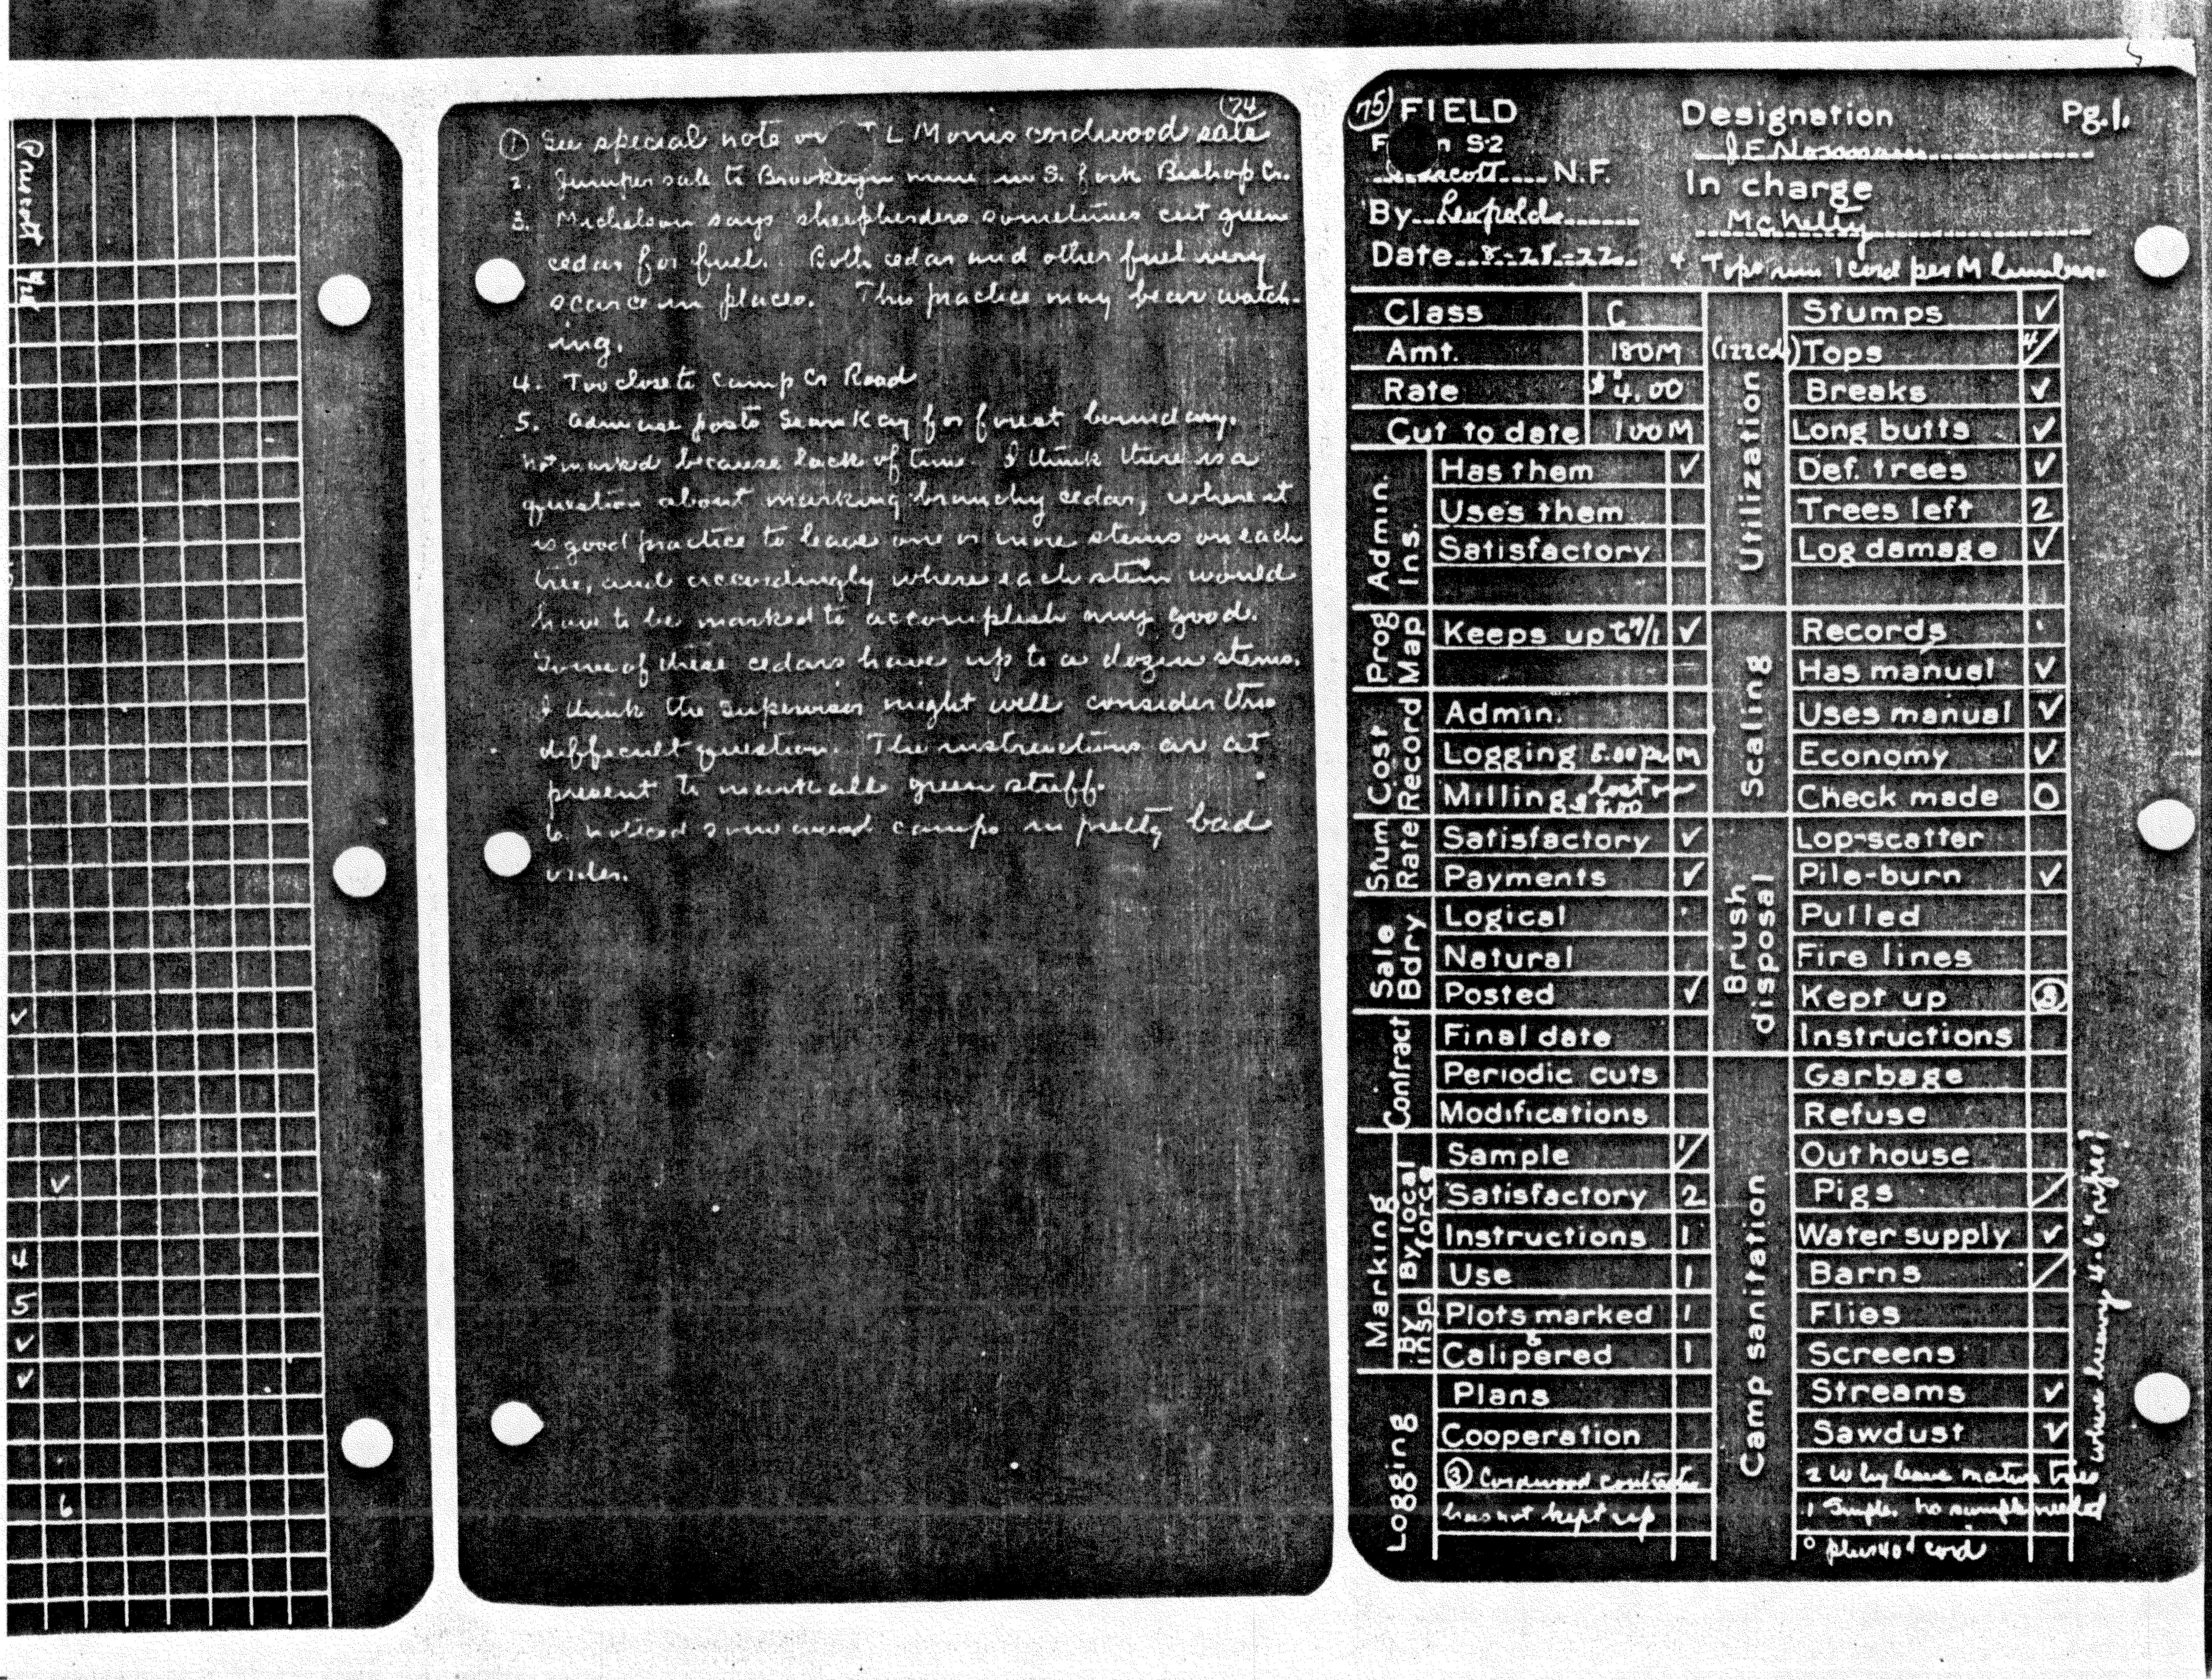 Prescott
74
① See special note on T L Morris cordwood sale
2. Juniper sale to Brooklyn mine in S. fork Bishop Cr.
3. Michelson says sheepherders sometimes cut green
cedar for fuel. Both cedar and other fuel very
scarce in places. This practice may bear watch-
ing.
4. Too close to Camp Cr Road
5. Admin use posts Sears Kay for forest boundary.
Not marked because lack of time. I think there is a
question about marking branchy cedar, where it
is good practice to leave one or more stems on each
tree, and accordingly where each stem would
have to be marked to accomplish any good.
Some of these cedars have up to a dozen stems.
I think the supervisor might well consider this
difficult question. The instructions are at
present to mark all green stuff.
6. Noticed some camps in pretty bad
order.
4
5
6
75 FIELD
S-2
N.F.
By Leopold
Date 8-28-22
Designation
In charge
Pg. 1.
4 Tops run 1 cord per M lumber
Class C
Amt. 180M (122 cds)
Rate $4.00
Cut to date 100M
Admin. Ins.
Has them ✓
Uses them
Satisfactory
Prog Map
Keeps up to 7/1 ✓
Cost Record
Admin.
Logging 8.00 per M
Milling 8.00
Stum Rate
Satisfactory ✓
Payments ✓
Sale Bdry
Logical
Natural
Posted ✓
Contract
Final date
Periodic cuts
Modifications
Marking
By local force
Sample 1/
Satisfactory 2
Instructions 1
Use 1
By insp
Plots marked 1
Calipered 1
Logging
Plans
Cooperation
③ Cordwood contractor
has not kept up
Utilization
Stumps ✓
Tops 4/
Breaks ✓
Long butts ✓
Def. trees ✓
Trees left 2
Log damage ✓
Scaling
Records
Has manual ✓
Uses manual ✓
Economy ✓
Check made 0
Brush disposal
Lop-scatter
Pile-burn ✓
Pulled
Fire lines
Kept up ③
Instructions
Camp sanitation
Garbage
Refuse
Outhouse
Pigs /
Water supply ✓
Barns /
Flies
Screens
Streams ✓
Sawdust ✓
2 Why leave mature trees
where heavy 4-6" repro?
1 Simple. No sample needed